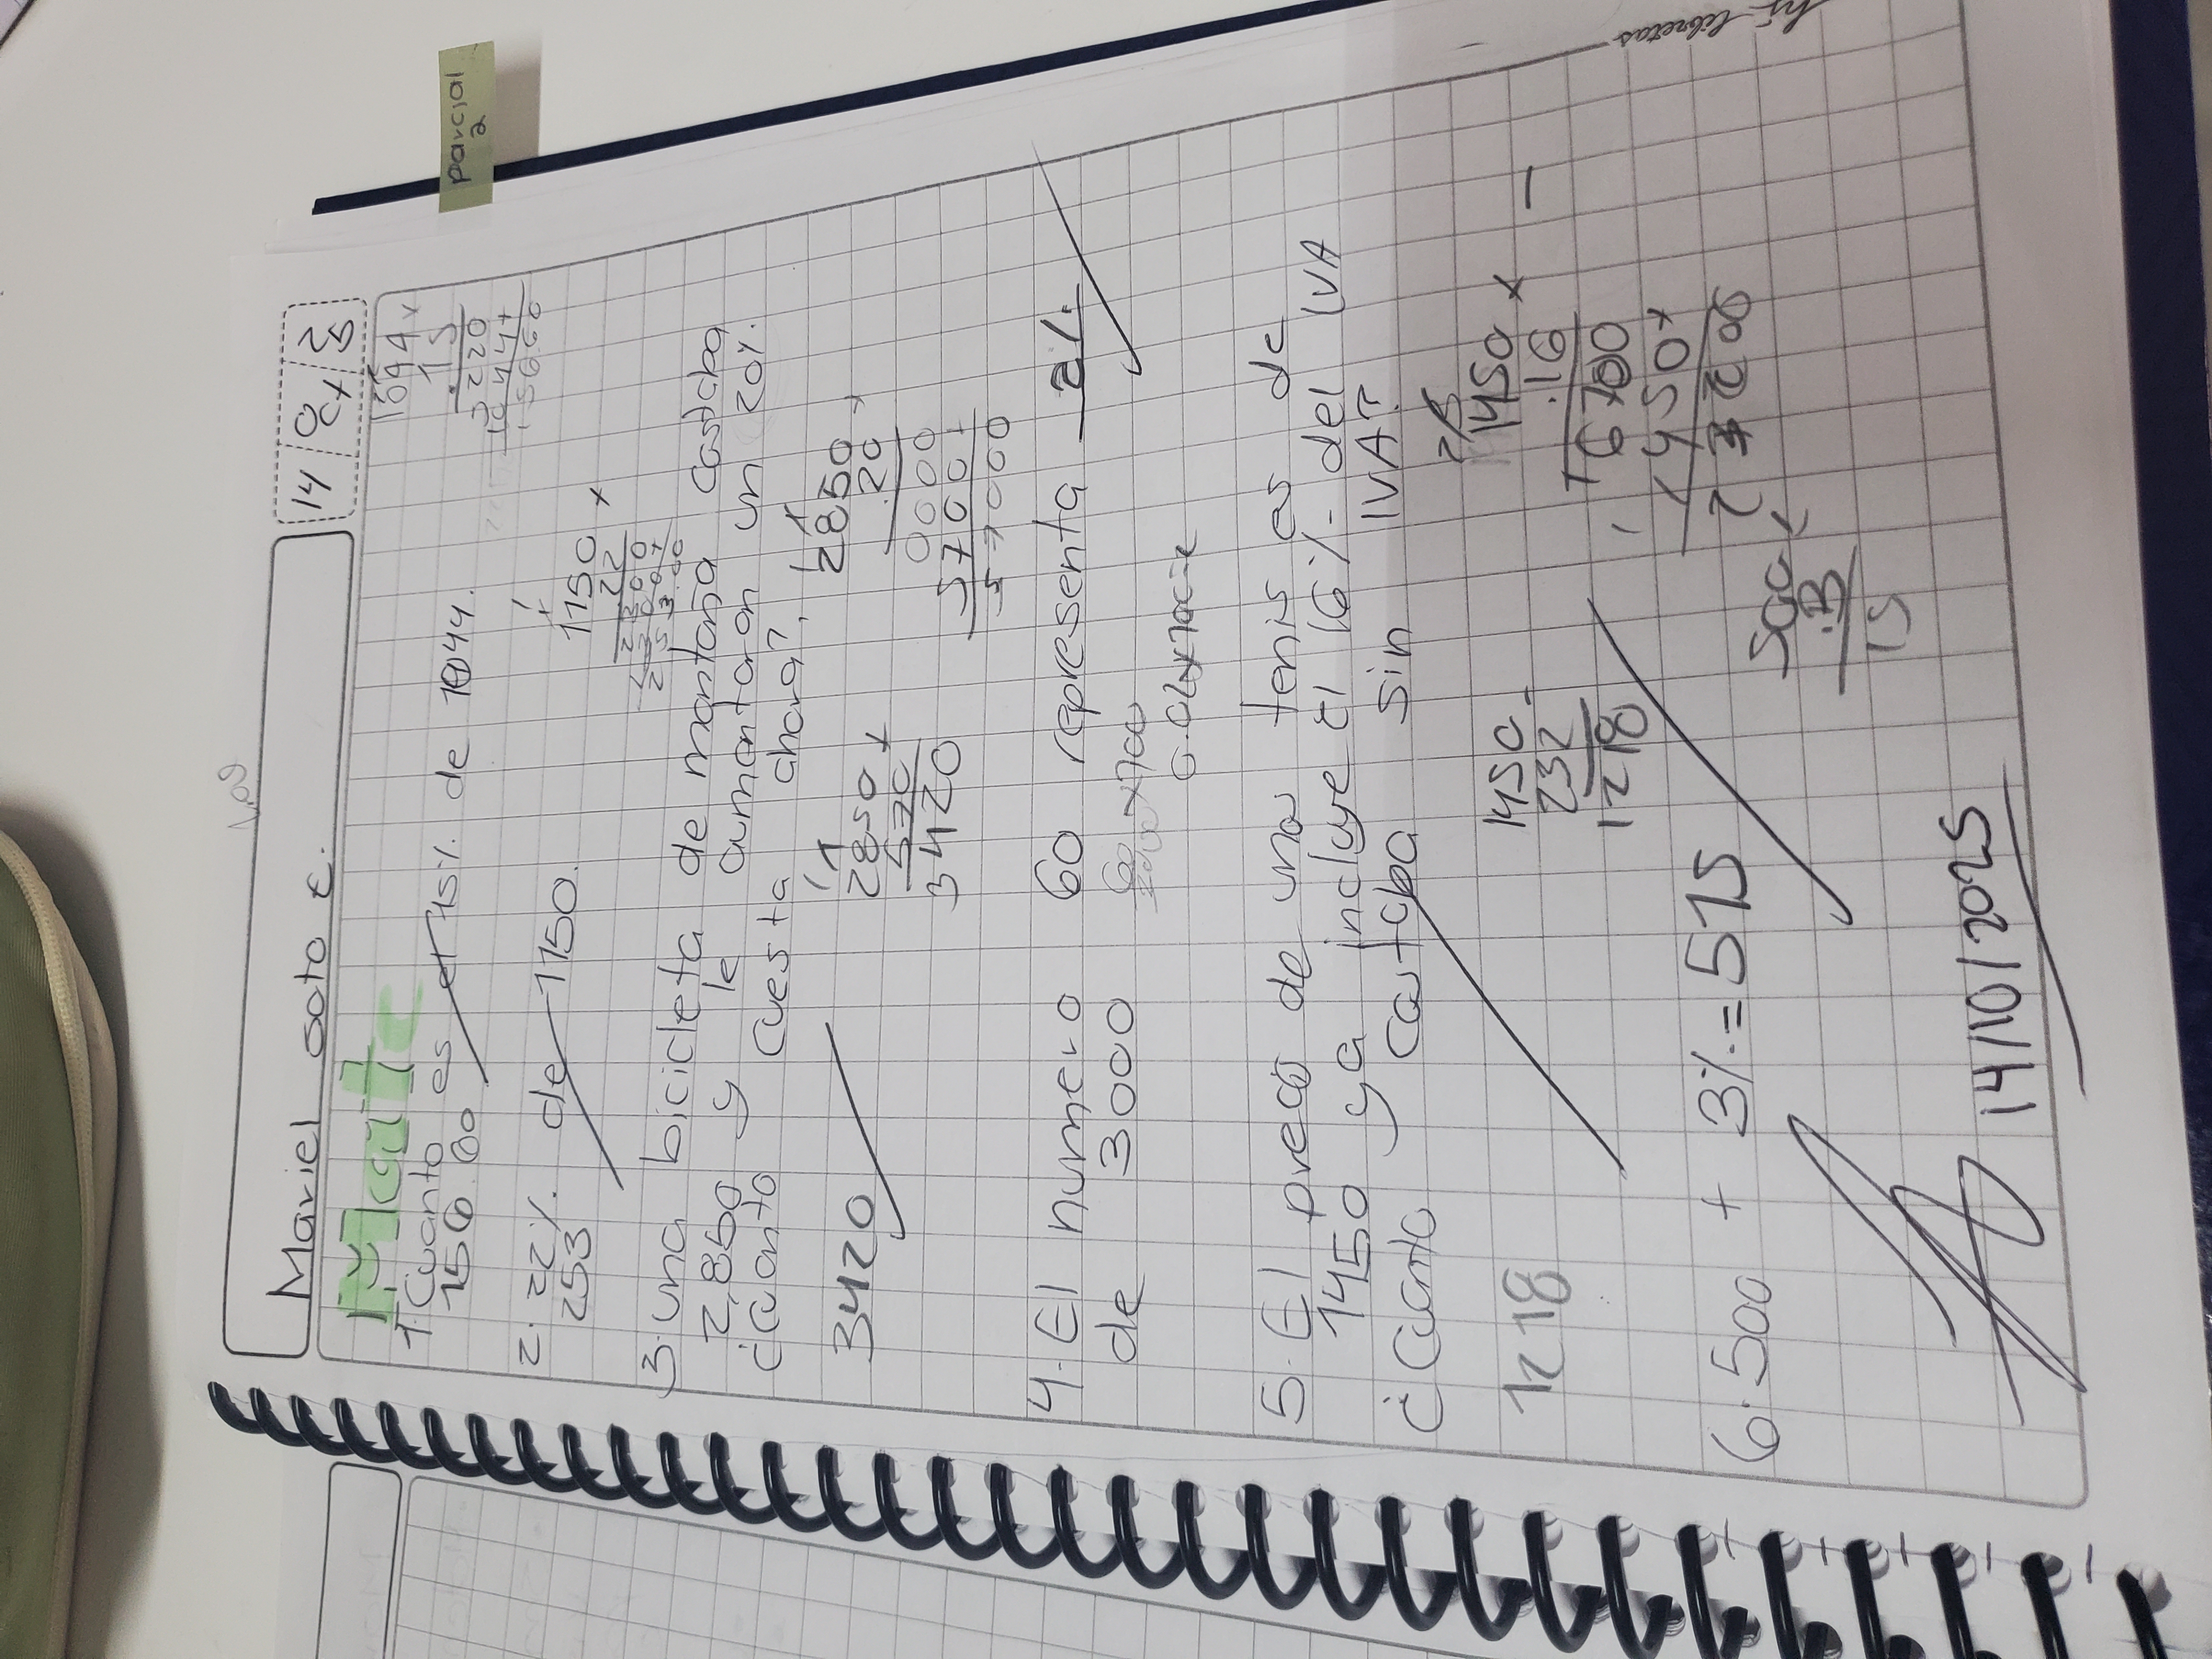 parcial
2
Mariel soto E.
14 Oct 25
Mate
1. Cuanto es el 15%. de 1044.
156.60
1044x
15
5220
1044+
15660
2. 22%. de 1150.
253
1150 x
22
2300
2300+
253.00
3. una bicicleta de montaña costaba
2,850 y le aumentaron un 20%.
¿cuanto cuesta ahora?
3420
2850+
570
3420
2850x
.20
0000
5700+
57000
4. El numero 60 representa 2%.
de 3000
5. El precio de unos tenis es de
1450 ya incluye el 16%. del IVA
¿Cuanto costaba sin IVA?
1218
1450-
232
1218
1450 x
.16
500 x
.3
15
6. 500 + 3%.=515
14/10/2025